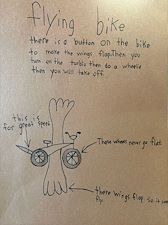 flying bike
there is a button on the bike
to make the wings flap. Then you
turn on the turbo then do a wheelie
then you will take off.
this is
for great speed
These wheels never go flat
there wings flap so it can
fly